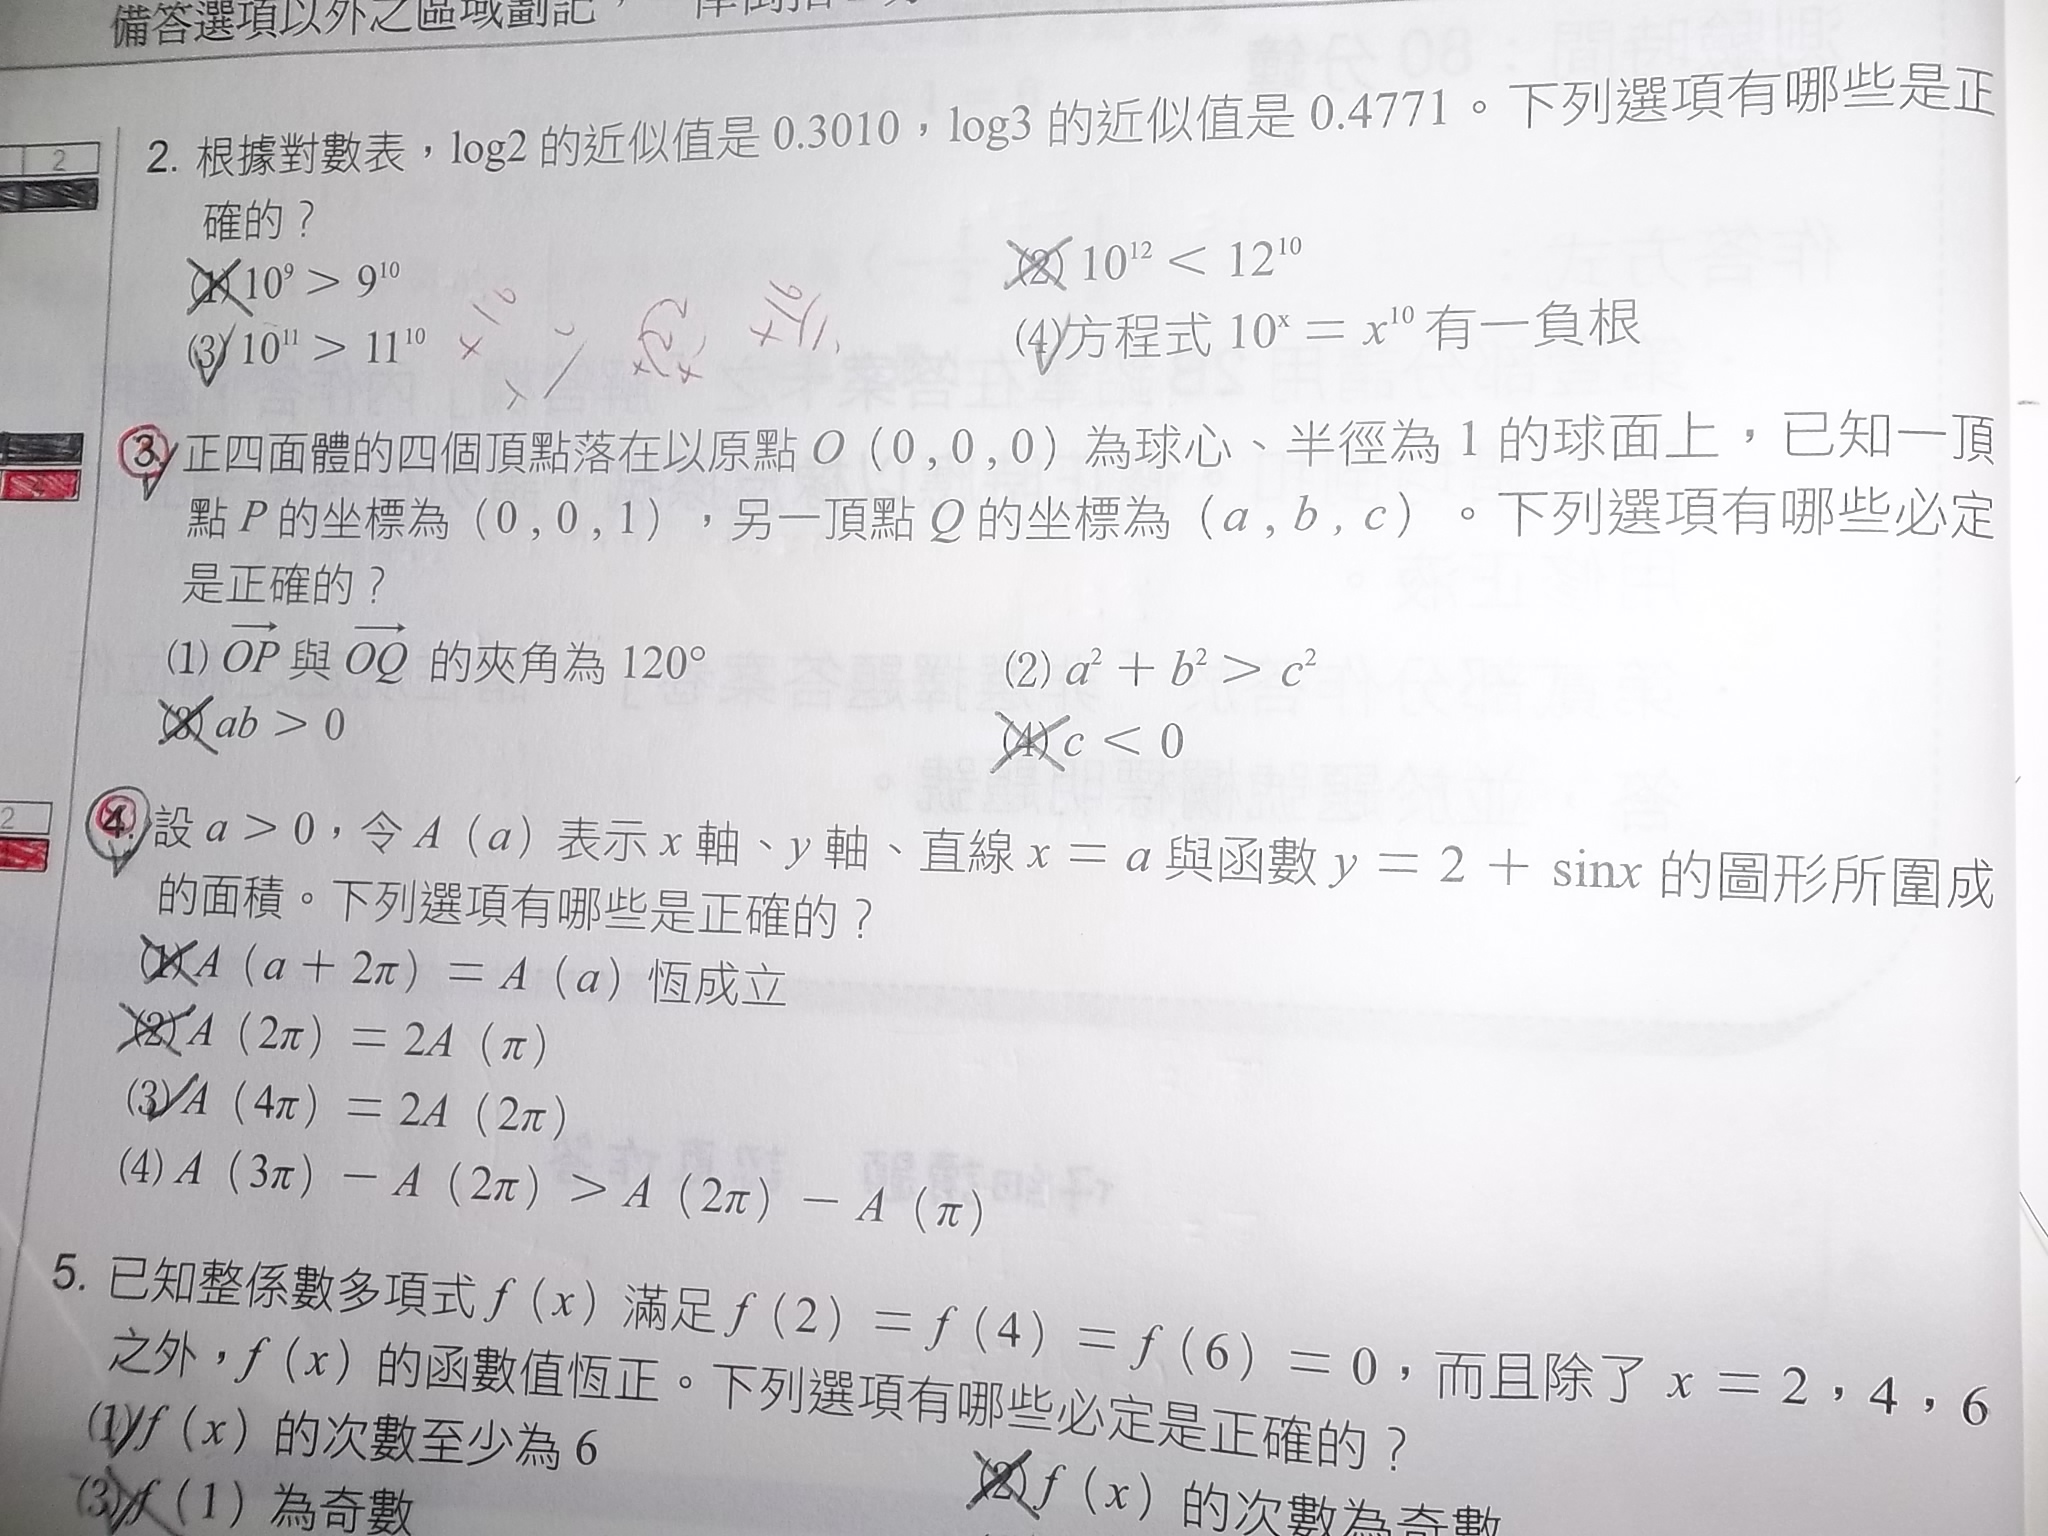 備答選項以外之區域劃記，一律倒扣
2. 根據對數表，log2 的近似值是 0.3010，log3 的近似值是 0.4771。下列選項有哪些是正
2
確的？
(1) 10⁹ > 9¹⁰ (2) 10¹² < 12¹⁰
(3) 10¹¹ > 11¹⁰ (4) 方程式 10ˣ = x¹⁰ 有一負根
3. 正四面體的四個頂點落在以原點 O（0 , 0 , 0）為球心、半徑為 1 的球面上，已知一頂
點 P 的坐標為（0 , 0 , 1），另一頂點 Q 的坐標為（a , b , c）。下列選項有哪些必定
是正確的？
(1) OP 與 OQ 的夾角為 120° (2) a² + b² > c²
(3) ab > 0 (4) c < 0
2
4. 設 a > 0，令 A（a）表示 x 軸、y 軸、直線 x = a 與函數 y = 2 + sinx 的圖形所圍成
的面積。下列選項有哪些是正確的？
(1) A（a + 2π）= A（a）恆成立
(2) A（2π）= 2A（π）
(3) A（4π）= 2A（2π）
(4) A（3π）− A（2π）> A（2π）− A（π）
5. 已知整係數多項式 f（x）滿足 f（2）= f（4）= f（6）= 0，而且除了 x = 2，4，6
之外，f（x）的函數值恆正。下列選項有哪些必定是正確的？
(1) f（x）的次數至少為 6
(2) f（x）的次數為奇數
(3) f（1）為奇數